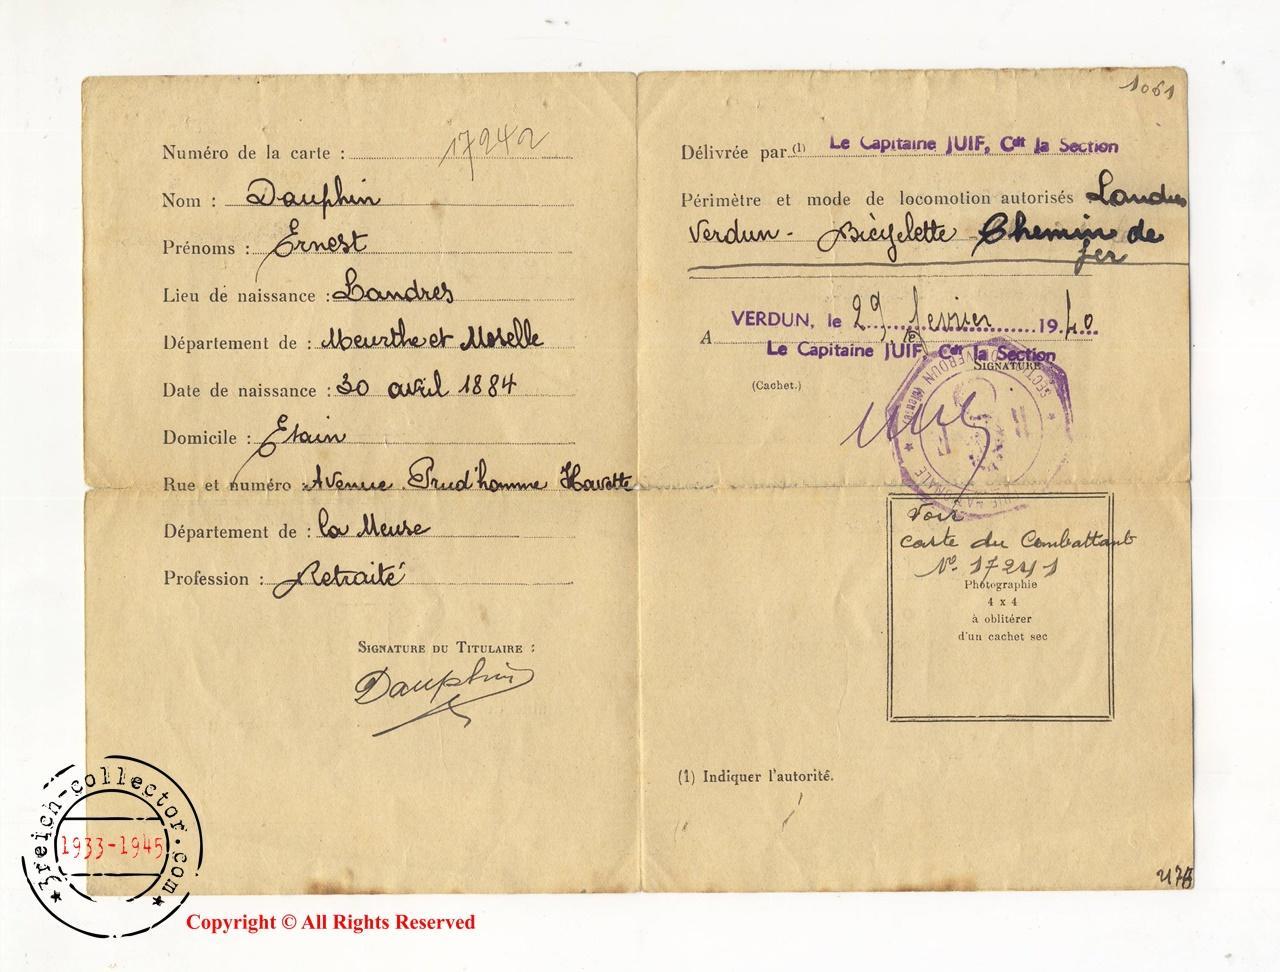 Numéro de la carte : 17242
Nom : Dauphin
Prénoms : Ernest
Lieu de naissance : Landres
Département de : Meurthe et Moselle
Date de naissance : 30 avril 1884
Domicile : Etain
Rue et numéro : Avenue Prud'homme Havette
Département de : la Meuse
Profession : Retraité
SIGNATURE DU TITULAIRE :
Dauphin
1061
Délivrée par (1) Le Capitaine JUIF, Cdt la Section
Périmètre et mode de locomotion autorisés Landres
Verdun - Bicyclette Chemin de
fer
A VERDUN, le 29 fevrier 1940
Le Capitaine JUIF, Cdt la Section
SIGNATURE
(Cachet.)
SECTION VERDUN (Meuse)
Voir
carte du Combattant
N° 17241
Photographie
4 x 4
à oblitérer
d'un cachet sec
(1) Indiquer l'autorité.
3reich-collector.com
1933-1945
Copyright © All Rights Reserved